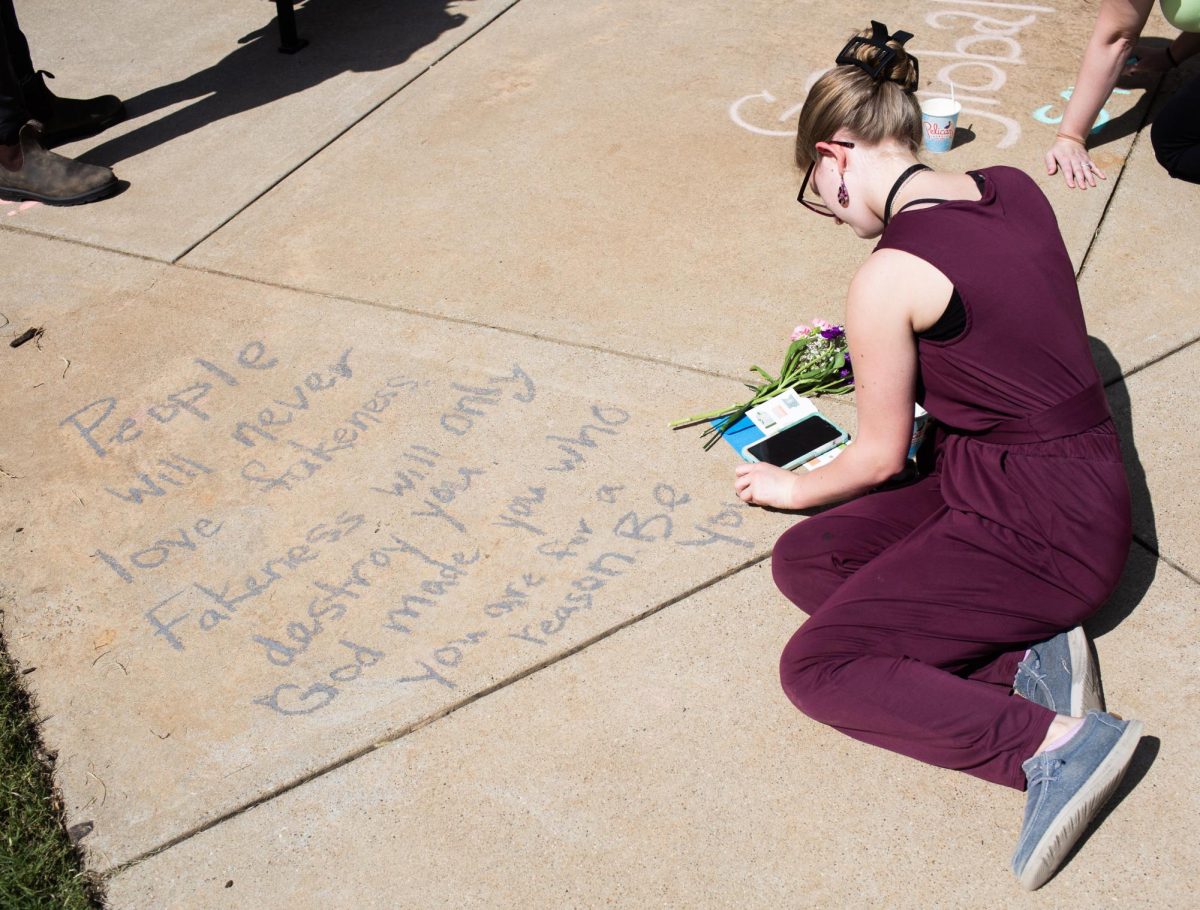 People
will never
love fakeness
Fakeness will only
dastroy you
God made you who
you are for a
reason Be
you
Pelican